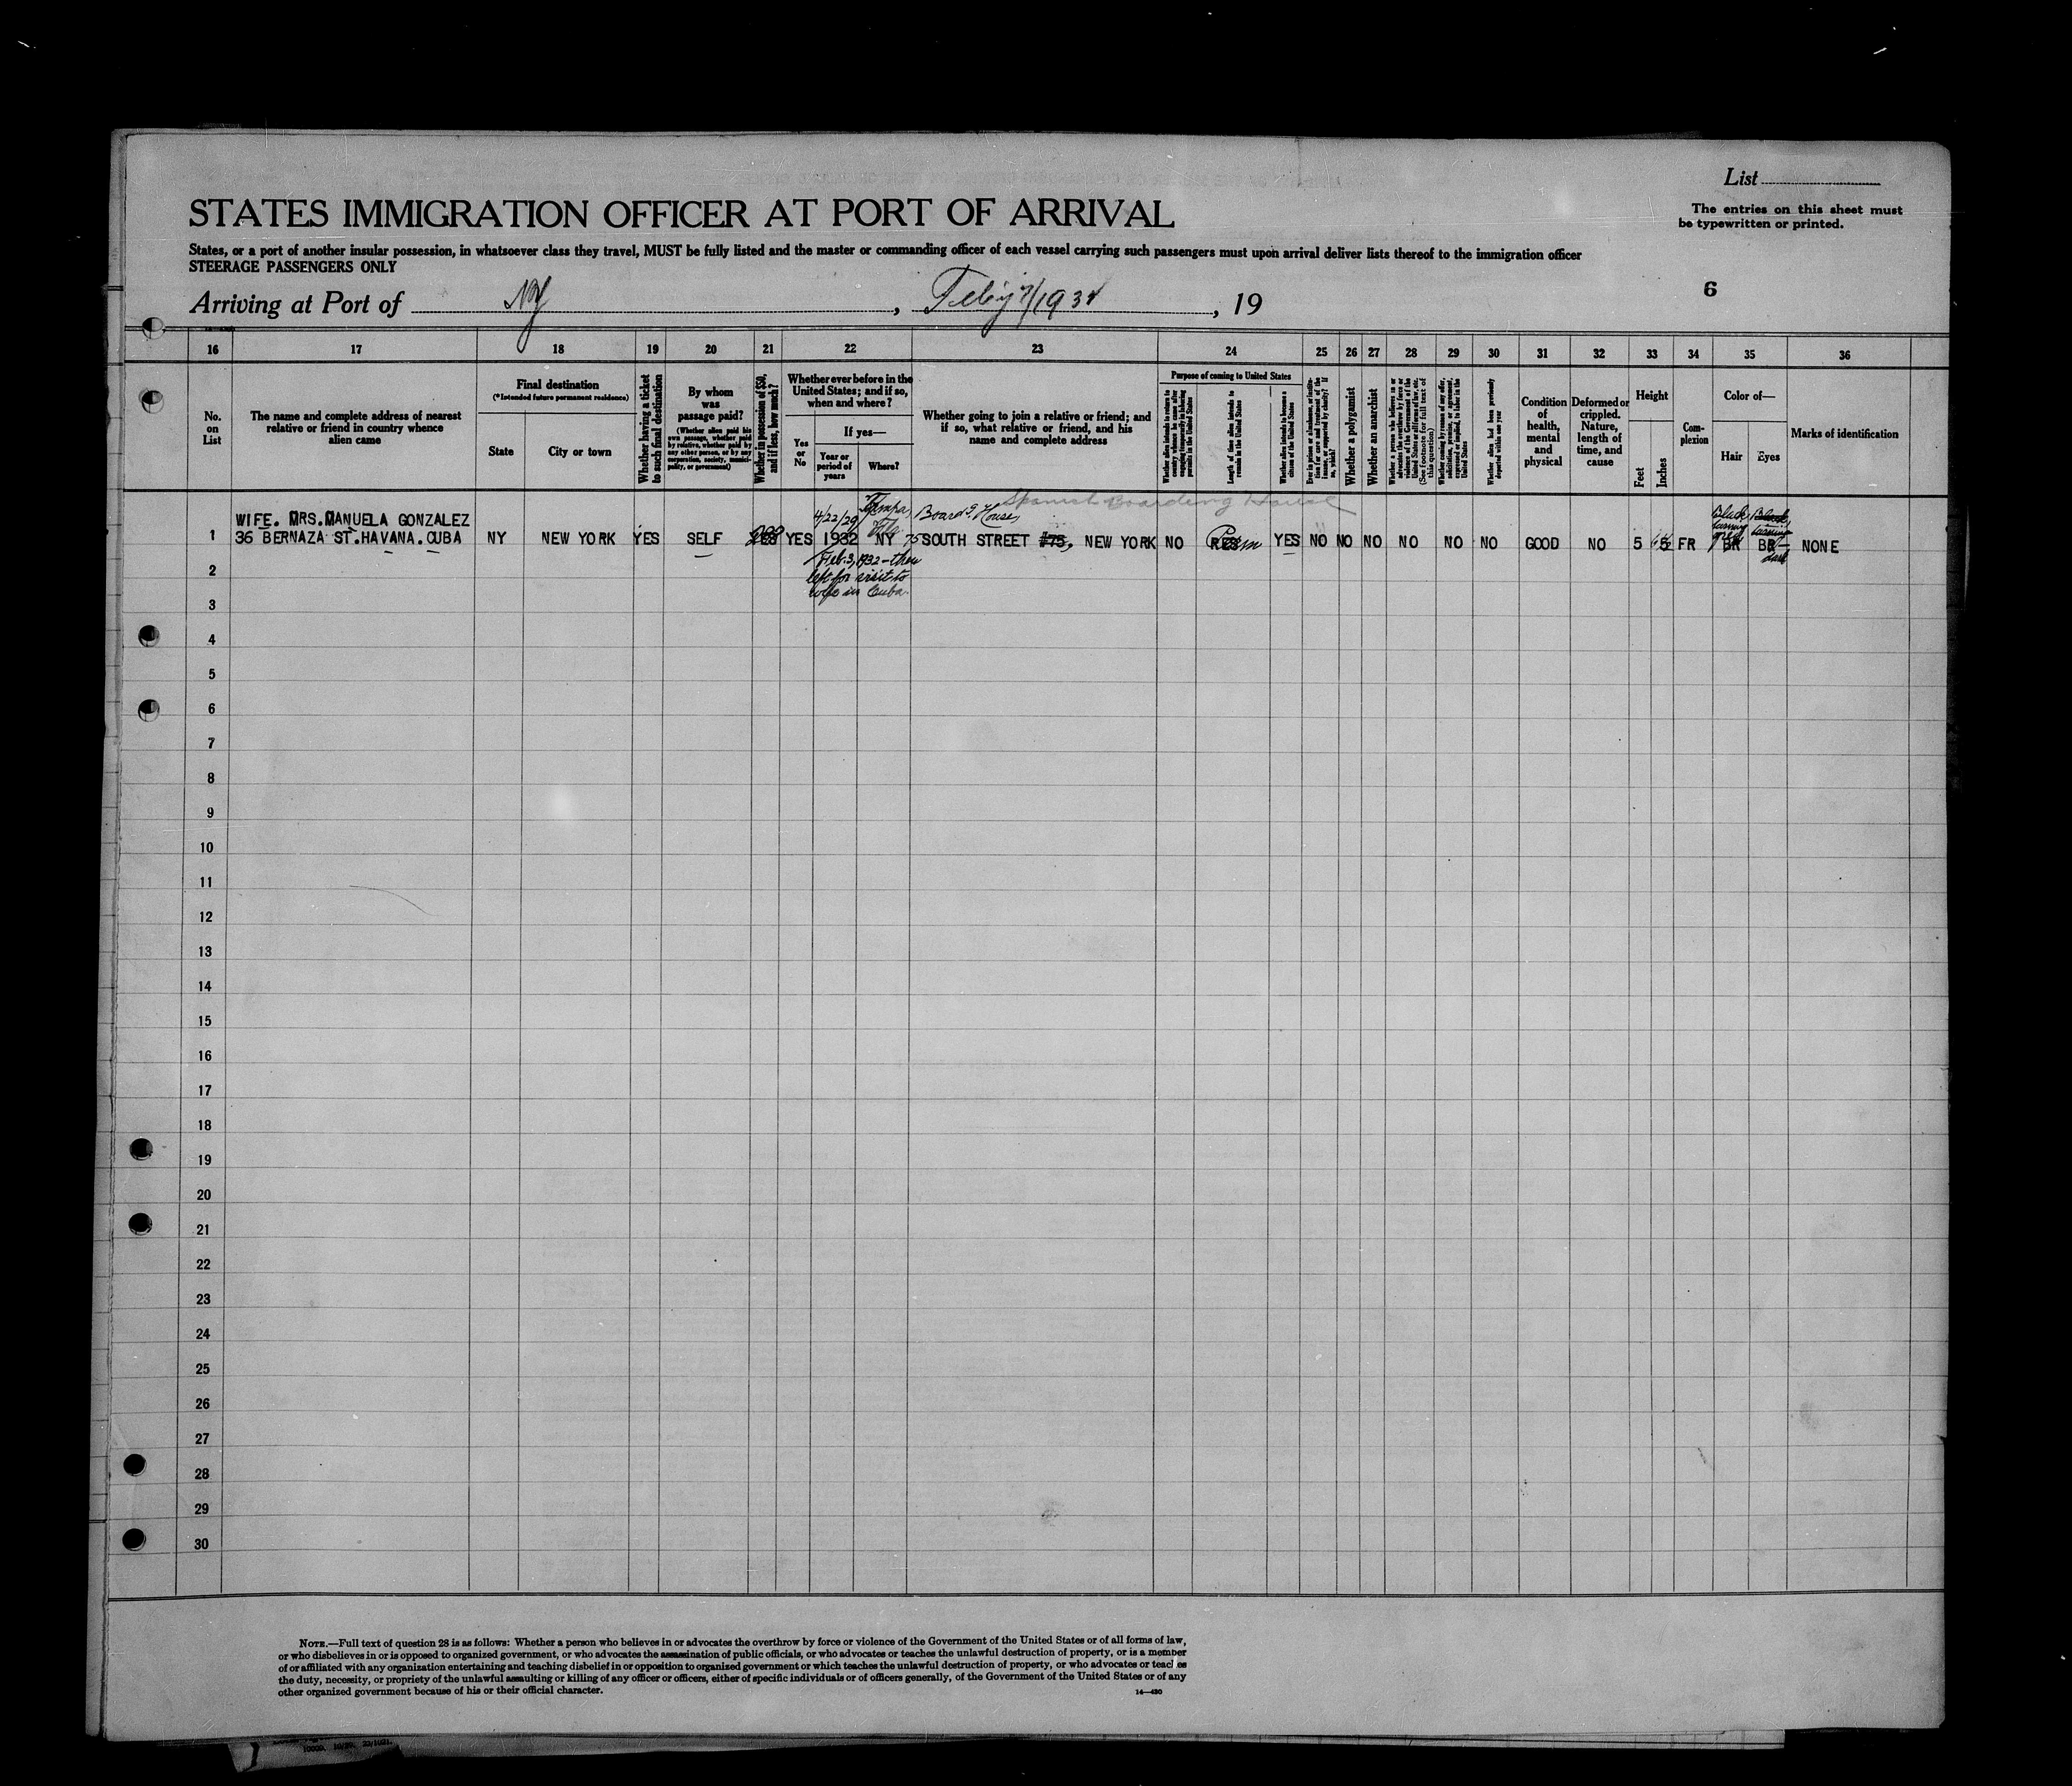 List
The entries on this sheet must
be typewritten or printed.
STATES IMMIGRATION OFFICER AT PORT OF ARRIVAL
States, or a port of another insular possession, in whatsoever class they travel, MUST be fully listed and the master or commanding officer of each vessel carrying such passengers must upon arrival deliver lists thereof to the immigration officer
STEERAGE PASSENGERS ONLY
6
Arriving at Port of NY, , 19
16 17 18 19 20 21 22 23 24 25 26 27 28 29 30 31 32 33 34 35 36
No.
on
List
The name and complete address of nearest
relative or friend in country whence
alien came
Final destination
(*Intended future permanent residence)
State
City or town
Whether having a ticket
to such final destination
By whom
was
passage paid?
(Whether alien paid his
own passage, whether paid
by relative, whether paid by
any other person, or by any
corporation, society, munici-
pality, or government)
Whether in possession of $50,
and if less, how much?
Whether ever before in the
United States; and if so,
when and where?
Yes
or
No
If yes—
Year or
period of
years
Where?
Whether going to join a relative or friend; and
if so, what relative or friend, and his
name and complete address
Purpose of coming to United States
Whether alien intends to return to
country whence he came after
engaging temporarily in laboring
pursuits in the United States
Length of time alien intends to
remain in the United States
Whether alien intends to become a
citizen of the United States
Whether a polygamist
Whether an anarchist
(See footnote for full text of
this question)
Whether alien had been previously
deported within one year
Condition
of
health,
mental
and
physical
Deformed or
crippled.
Nature,
length of
time, and
cause
Height
Feet
Inches
Com-
plexion
Color of—
Hair
Eyes
Marks of identification
Spanish Boarding House
4/22/29 Tampa, Fla. Board'g House,
WIFE. MRS. MANUELA GONZALEZ
1 36 BERNAZA ST. HAVANA. CUBA NY NEW YORK YES SELF YES 1932 NY 75 SOUTH STREET #75, NEW YORK NO Perm YES NO NO NO NO NO NO GOOD NO 5 5 FR BR BR NONE
Feb. 3, 1932 - then
left for visit to
wife in Cuba.
2
3
4
5
6
7
8
9
10
11
12
13
14
15
16
17
18
19
20
21
22
23
24
25
26
27
28
29
30
NOTE.—Full text of question 28 is as follows: Whether a person who believes in or advocates the overthrow by force or violence of the Government of the United States or of all forms of law,
or who disbelieves in or is opposed to organized government, or who advocates the assassination of public officials, or who advocates or teaches the unlawful destruction of property, or is a member
of or affiliated with any organization entertaining and teaching disbelief in or opposition to organized government or which teaches the unlawful destruction of property, or who advocates or teaches
the duty, necessity, or propriety of the unlawful assaulting or killing of any officer or officers, either of specific individuals or of officers generally, of the Government of the United States or of any
other organized government because of his or their official character.
14—430